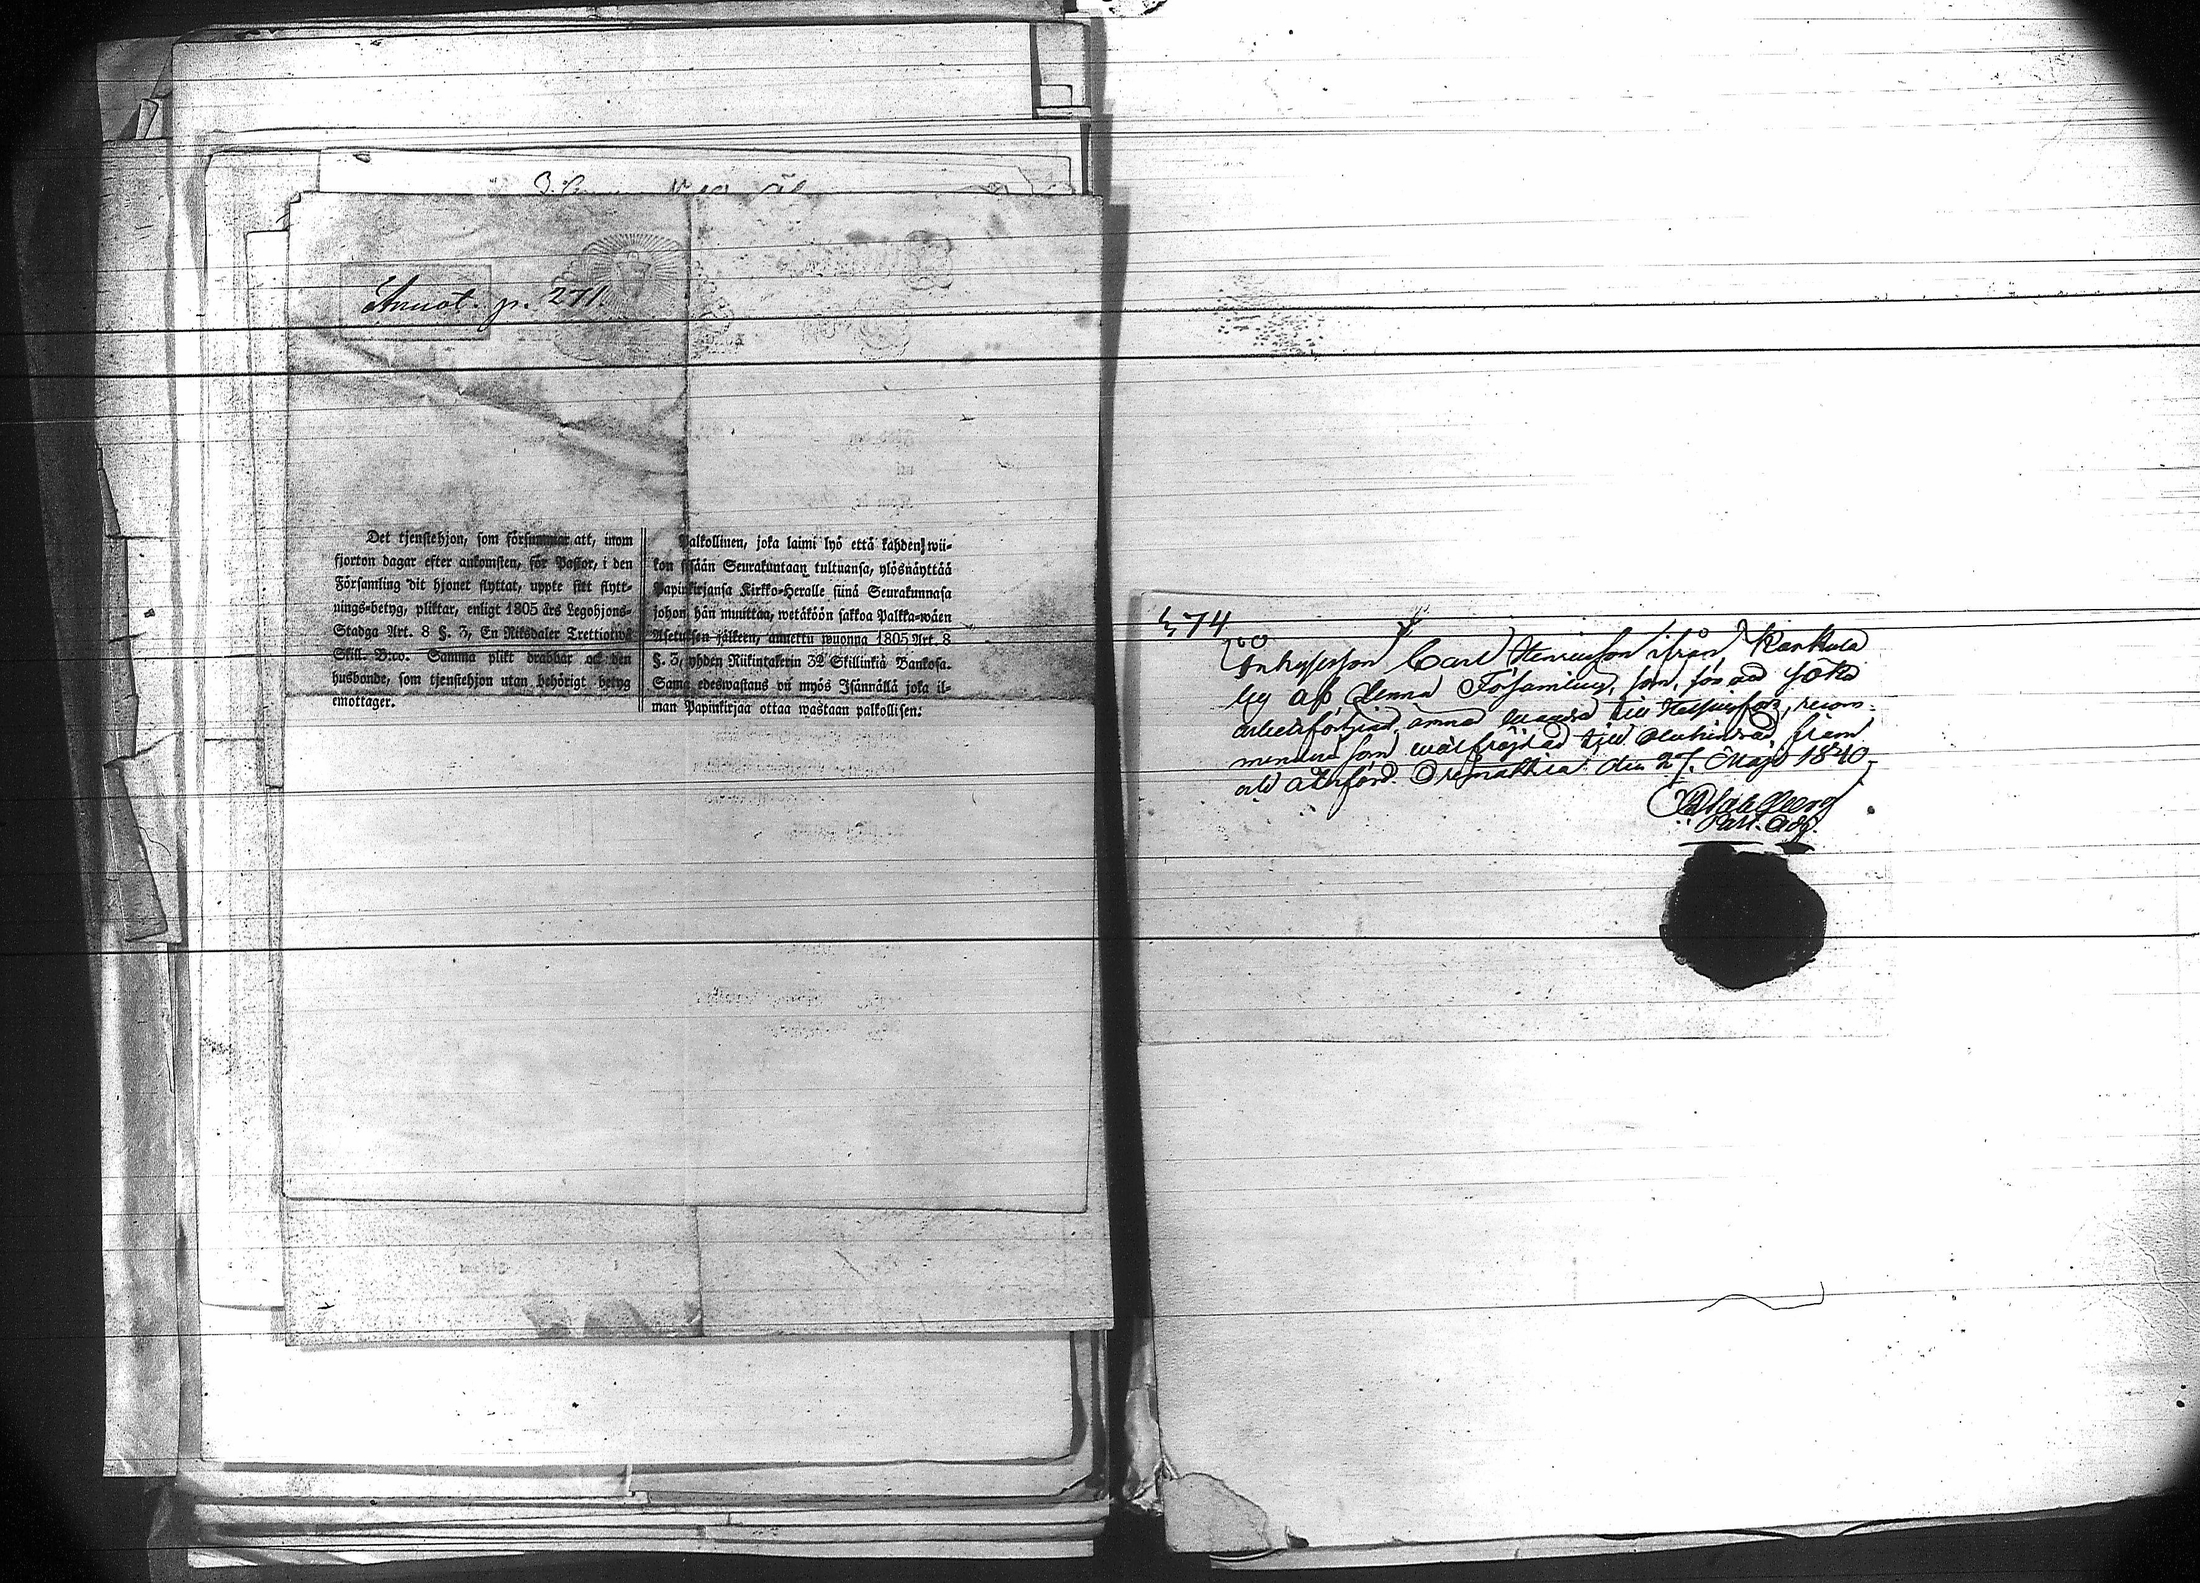 Annot. p. 271.
Det tjenstehjon, som försummar att, inom
fjorton dagar efter ankomsten, för Pastor, i den
Församling dit hjonet flyttat, uppte sitt flytt-
nings-betyg, pliktar, enligt 1805 års Legohjons-
Stadga Art. 8 §. 3, En Riksdaler Trettiotwå
Skill. B:co. Samma plikt drabbar ock den
husbonde, som tjenstehjon utan behörigt betyg
emottager.
Palkollinen, joka laimi lyö että kahden wii-
kon sisään Seurakuntaan tultuansa, ylösnäyttää
Papinkirjansa Kirkko-Heralle siinä Seurakunnasa
johon hän muuttaa, wetäköön sakkoa Palkka-wäen
Asetuksen jälkeen, annettu wuonna 1805 Art. 8
§. 3, yhden Riikintalerin 32 Skillinkiä Bankosa.
Sama edeswastaus on myös Isännällä joka il-
man Papinkirjaa ottaa wastaan palkollisen.
74
Inhyseson Carl Henricsson ifrån Karkula
by af denna Församling, som, för att söka
arbetsförtjenst, ämnar till Helsingfors, recom-
menderas som wälfräjdad till obehindrad fram
och återfärd. Orimattila den 27. Maji 1840.
Past. Adj.